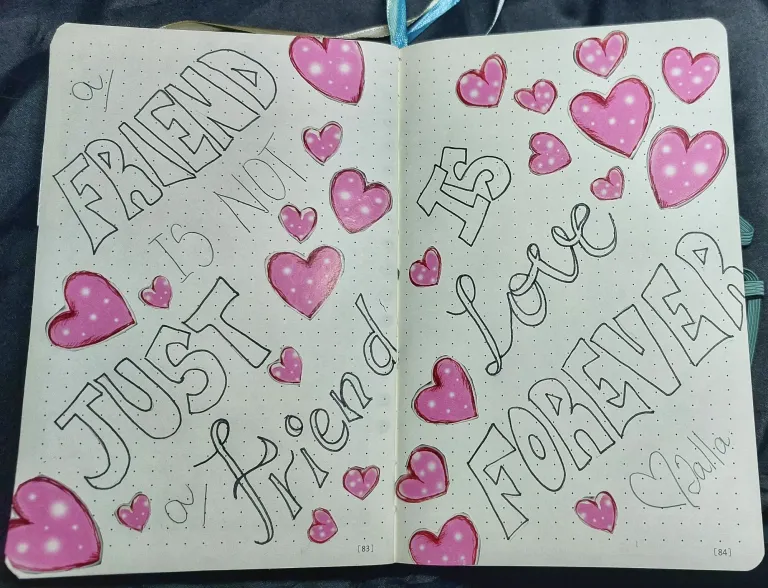 a
FRIEND
IS NOT
JUST
a friend
[83]
IS
Love
FOREVER
[84]